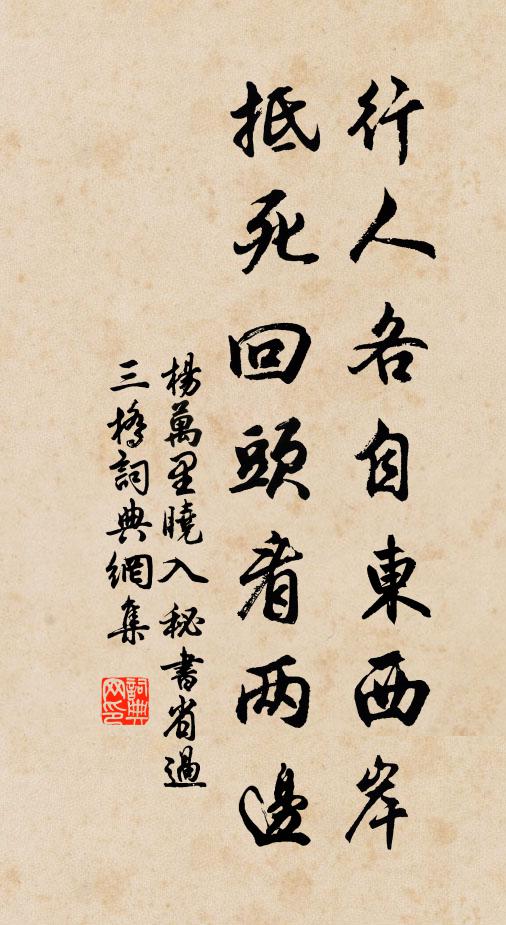 行人各自東西岸
抵死回頭看兩邊
楊萬里曉入秘書省過
三橋詞典網集
詞典网印